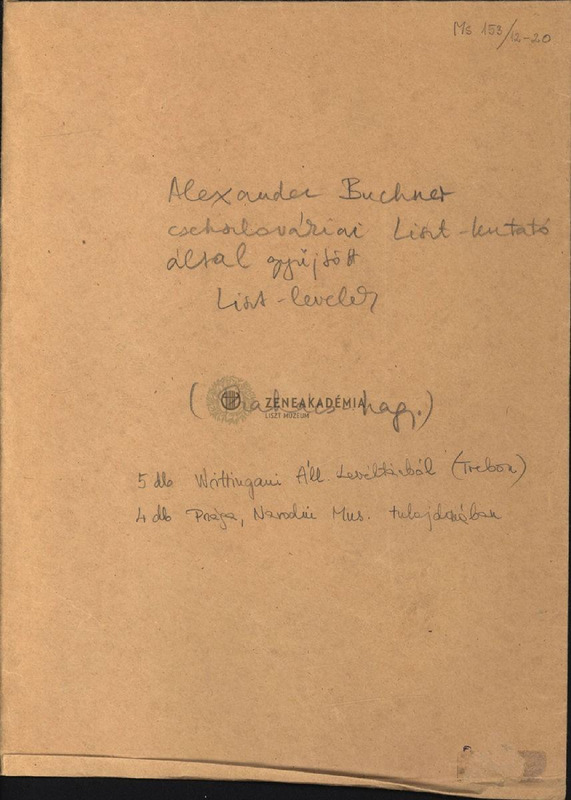 Ms 153/12-20
Alexander Buchner
csehszlovákiai Liszt-kutató
által gyűjtött
Liszt-levelek
( hagy.)
ZENEAKADÉMIA
LISZT MÚZEUM
5 db Wittingaui Áll. Levéltárból (Trebon)
4 db Prága, Narodni Mus. tulajdonában